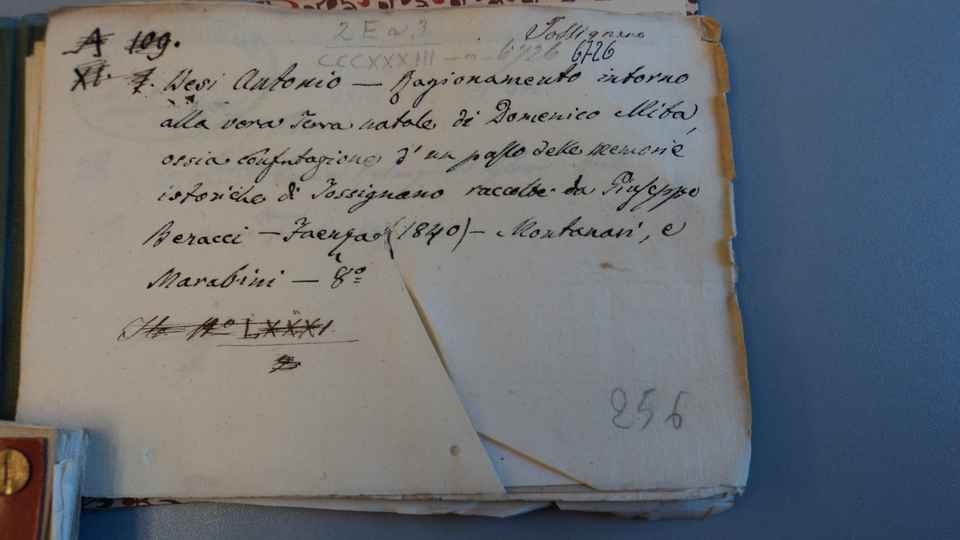 2 E a. 3 Tossignano
A 109. CCCXXXIII — n — 6726 6726
XI. 7. Besi Antonio — Ragionamento intorno
alla vera Terra natale di Domenico Mita,
ossia confutazione d'un passo delle memorie
istoriche di Tossignano raccolte da Giuseppe
Beracci — Faenza (1840) — Montanari, e
Marabini — 8º
Nº LXXXI
256